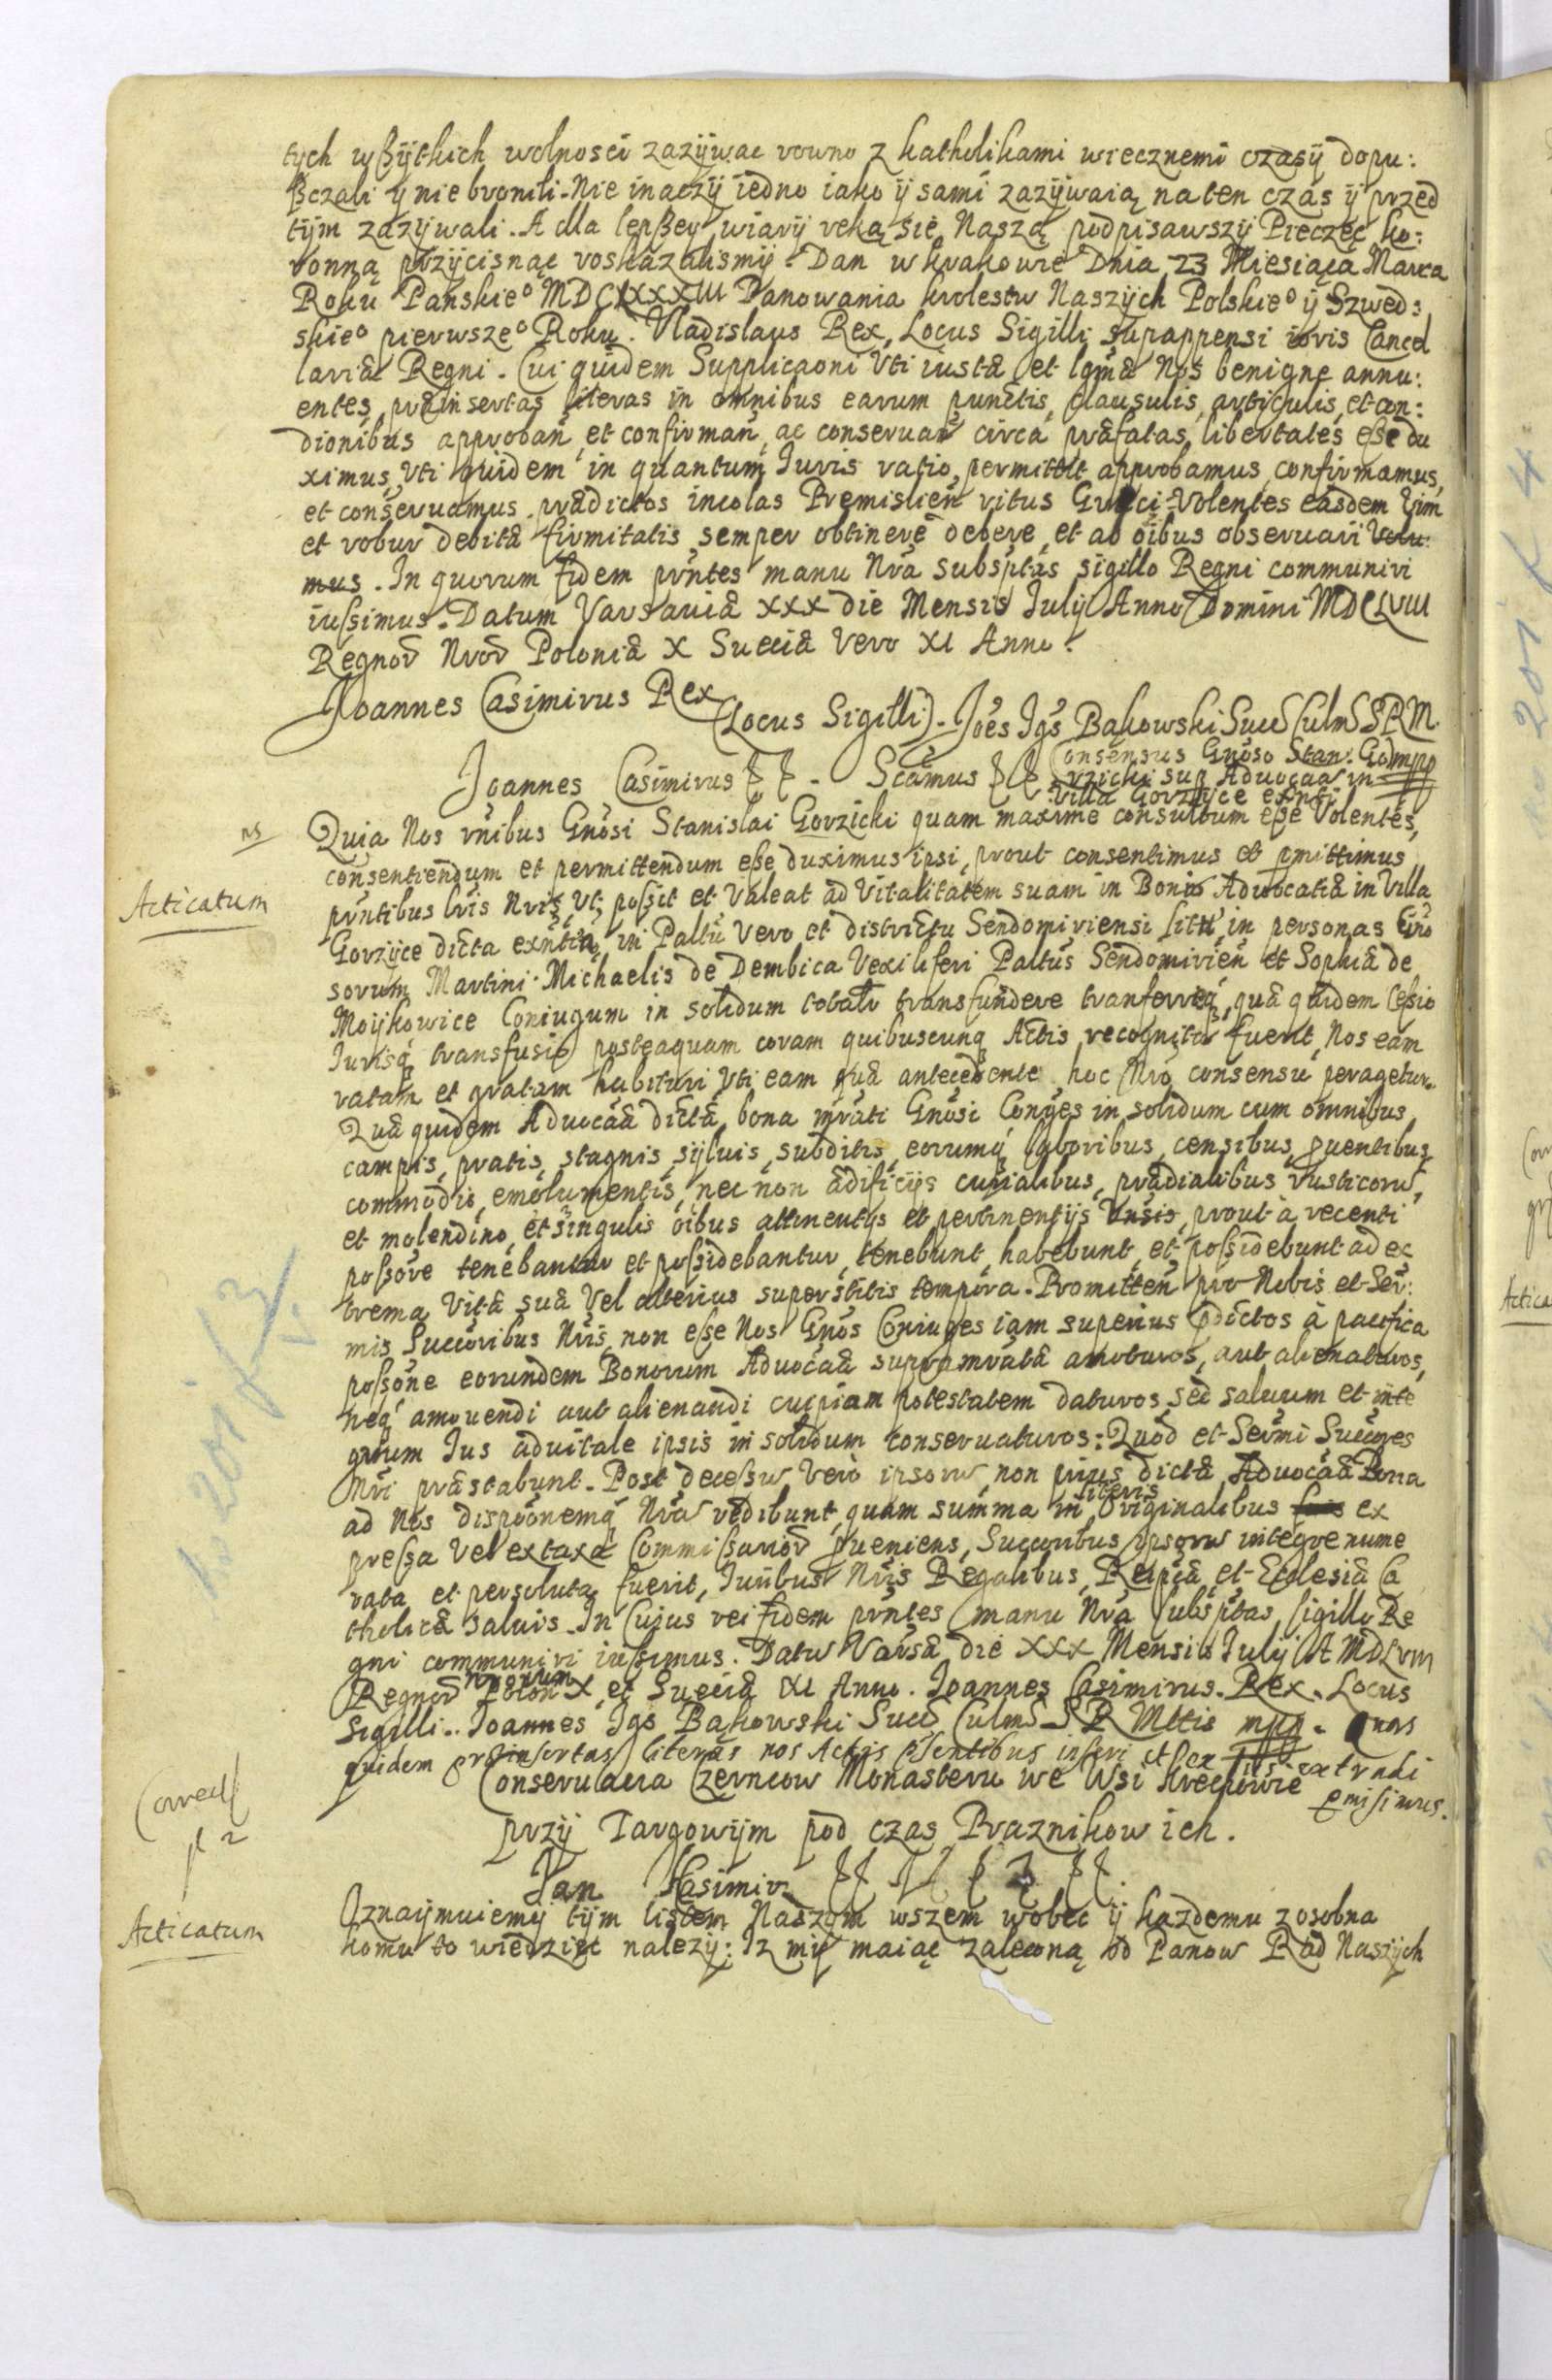 tych wßÿtkich wolnosci zazÿwac rowno z katholikami wiecznemi czasÿ dopu:
ßczali ÿ nie bronili. Nie inaczÿ iedno iako ÿ sami zazÿwaią na ten czas ÿ przed
tÿm zazÿwali. A dla lepßey wiarÿ ręką się Naszą podpisawszÿ Pieczęc ko:
ronną przÿcisnąc roskazalismÿ. Dan w Krakowie Dnia 23 Miesiąca Marca
Roku Panskieo MDCXXXIII Panowania krolestw Naszÿch Polskieo ÿ Szweds
skieo pierwszeo Roku. Vladislaus Rex, Locus Sigilli supappensi ioris Cancel
lariæ Regni. Cui quidem Supplicaoni Vti iustæ et lgmæ Nos benigne annu:
entes, præinsertas literas in omnibus earum punctis, clausulis, articulis, et con:
dionibus approban, et confirman, ac conseruan circa præfatas libertates eße du
ximus, Vti quidem in quantum Iuris ratio permittit approbamus, confirmamus,
et conseruamus. prædictos incolas Premislien ritus Græci. Volentes easdem Vim
et robur debitæ firmitatis semper obtinere debere, et ab oibus obseruari Volu:
mus. In quorum fidem pntes manu Nra subsptas sigillo Regni communiri
iussimus. Datum Varsauiæ XXX die Mensis Julij Anno Domini MDCLVIII
Regnor Nror Poloniæ X Sueciæ Vero XI Anno.
Joannes Casimirus Rex
(Locus Sigilli). Joes Igs Bąkowski Succ Culm S R M.
mpp
Consensus Gnoso Stan. Go
rzicki sup Aduocaa in
Villa Gorzÿce exnti
Joannes Casimirus &&. Scamus &&
ns
Quia Nos rnibus Gnosi Stanislai Gorzicki quam maxime consultum eße Volentes,
Acticatum
consentiendum et permittendum eße duximus ipsi, prout consentimus et pmittimus
pntibus lris Nris, Vt possit et Valeat ad Vitalitatem suam in Bonis Aduocatiæ in Villa
Gorzÿce dicta exntia, in Paltu Vero et districtu Sendomiriensi sitis in personas Gno
sorum Martini Michaelis de Dembica Vexiliferi Paltus Sendomirien et Sophiæ de
Moÿkowice Coniugum in solidum totalr transfundere tranferreq, quæ quidem Ceßio
Iurisq transfusio posteaquam coram quibuscunq Actis recognita fuerit, Nos eam
ratam et gratam habituri, Vti eam quæ antecedente hoc Nro consensu peragetur.
Quæ quidem Aduocaæ dictæ bona mrati Gnosi Conges in solidum cum omnibus,
campis, pratis, stagnis, sÿluis, subditis, eorumq laboribus, censibus, puentibus
commodis, emolumentis, nec non ædificijs curialibus, prædialibus rusticoru,
et molendino, et singulis oibus attinentijs et pertinentijs Vnsis, prout à recenti
possore tenebantur et possidebantur, tenebunt, habebunt, et possidebunt ad ec
trema Vitæ suæ Vel alterius superstitis tempora. Promitten pro Nobis et Ser:
mis Succoribus Nris, non esse Nos Gnos Coniuges iam superius pdictos à pacifica
possone eorundem Bonorum Aduocaæ supramratæ amoturos, aut alienaturos,
neq amouendi aut alienandi cuipiam potestatem daturos, sed saluum et inte
grum Ius aduitale ipsis in solidum conseruaturos: Quod et Sermi Succores
Nri præstabunt. Post decessu Vero ipsoru, non prius dictæ Aduocaæ Bona
ad Nos disponemq Nra redibunt, quam summa in literis Originalibus suis ex
pressa Vel ex taxa Commissarior pueniens, Succoribus ipsoru integre nume
rata et persoluta fuerit, Iuribus Nris Regalibus, Reipcæ, et Ecclesiæ Ca
tholicæ saluis. In Cuius rei fidem pntes manu Nra subsptas, sigillo Re
gni communiri iussimus. Datu Varsæ die XXX Mensis Julij A MDLVIII
Regnor nrorum Polon X, et Sueciæ XI Anno. Joannes Casimirus Rex. Locus
Sigilli. Joannes Igs Bąkowski Succ Culm S R Mttis mpp. quas
quidem præinsertas literas nos Actis psentibus inseri et per extradi
pmisimus.
Correct
Conseruacia Czerncow Monasteru we Wsi Krechowie
przÿ Targowÿm pod czas Praznikow ich.
Jan Kasimirz
Acticatum
Oznaÿmuiemÿ tÿm listem Naszÿm wszem wobec ÿ kazdemu zosobna
komu to wiedziec nalezÿ: Iz mÿ maiąc zaleconą od Panow Rad Naszÿch